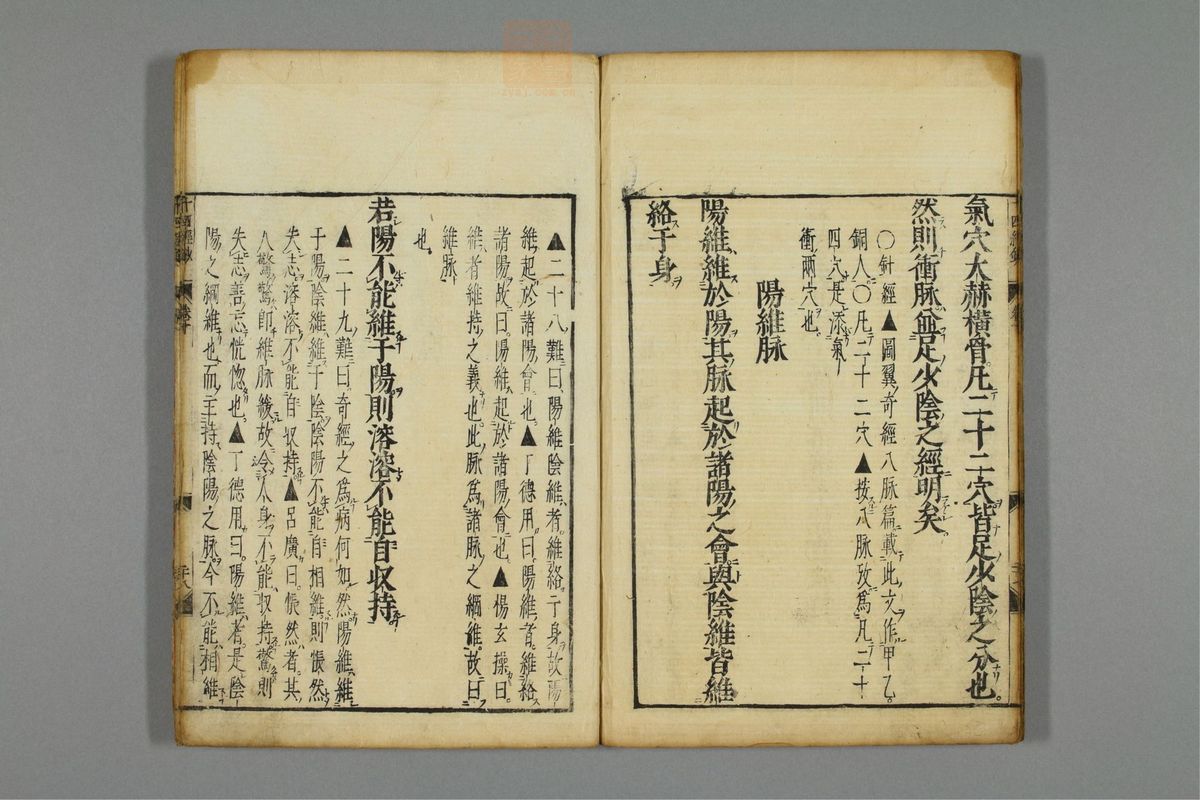 氣穴大赫橫骨凡二十二穴皆足少陰之分也
然則衝脉並足少陰之經明矣
〇針經▲圖翼奇經八脉篇載此文作甲乙
銅人〇凡二十二穴▲按八脉攷為凡二十
四穴是添氣衝兩穴也
陽維脉
陽維維於陽其脉起於諸陽之會與陰維皆維
絡于身
▲二十八難曰陽維陰維者維絡于身故陽
維起於諸陽會也▲丁德用曰陽維者維絡
諸陽故曰陽維起於諸陽會也▲楊玄操曰
維者維持之義也此脉為諸脉之綱維故曰
維脉
也
若陽不能維于陽則溶溶不能自収持
▲二十九難曰奇經之為病何如然陽維維
于陽陰維維于陰陰陽不能自相維則悵然
失志溶溶不能自収持▲呂廣曰悵然者其
人驚驚即維脉緩故令人身不能収持驚則
失志善忘恍惚也▲丁德用曰陽維者是陰
陽之綱維也而主持陰陽之脉今不能相維